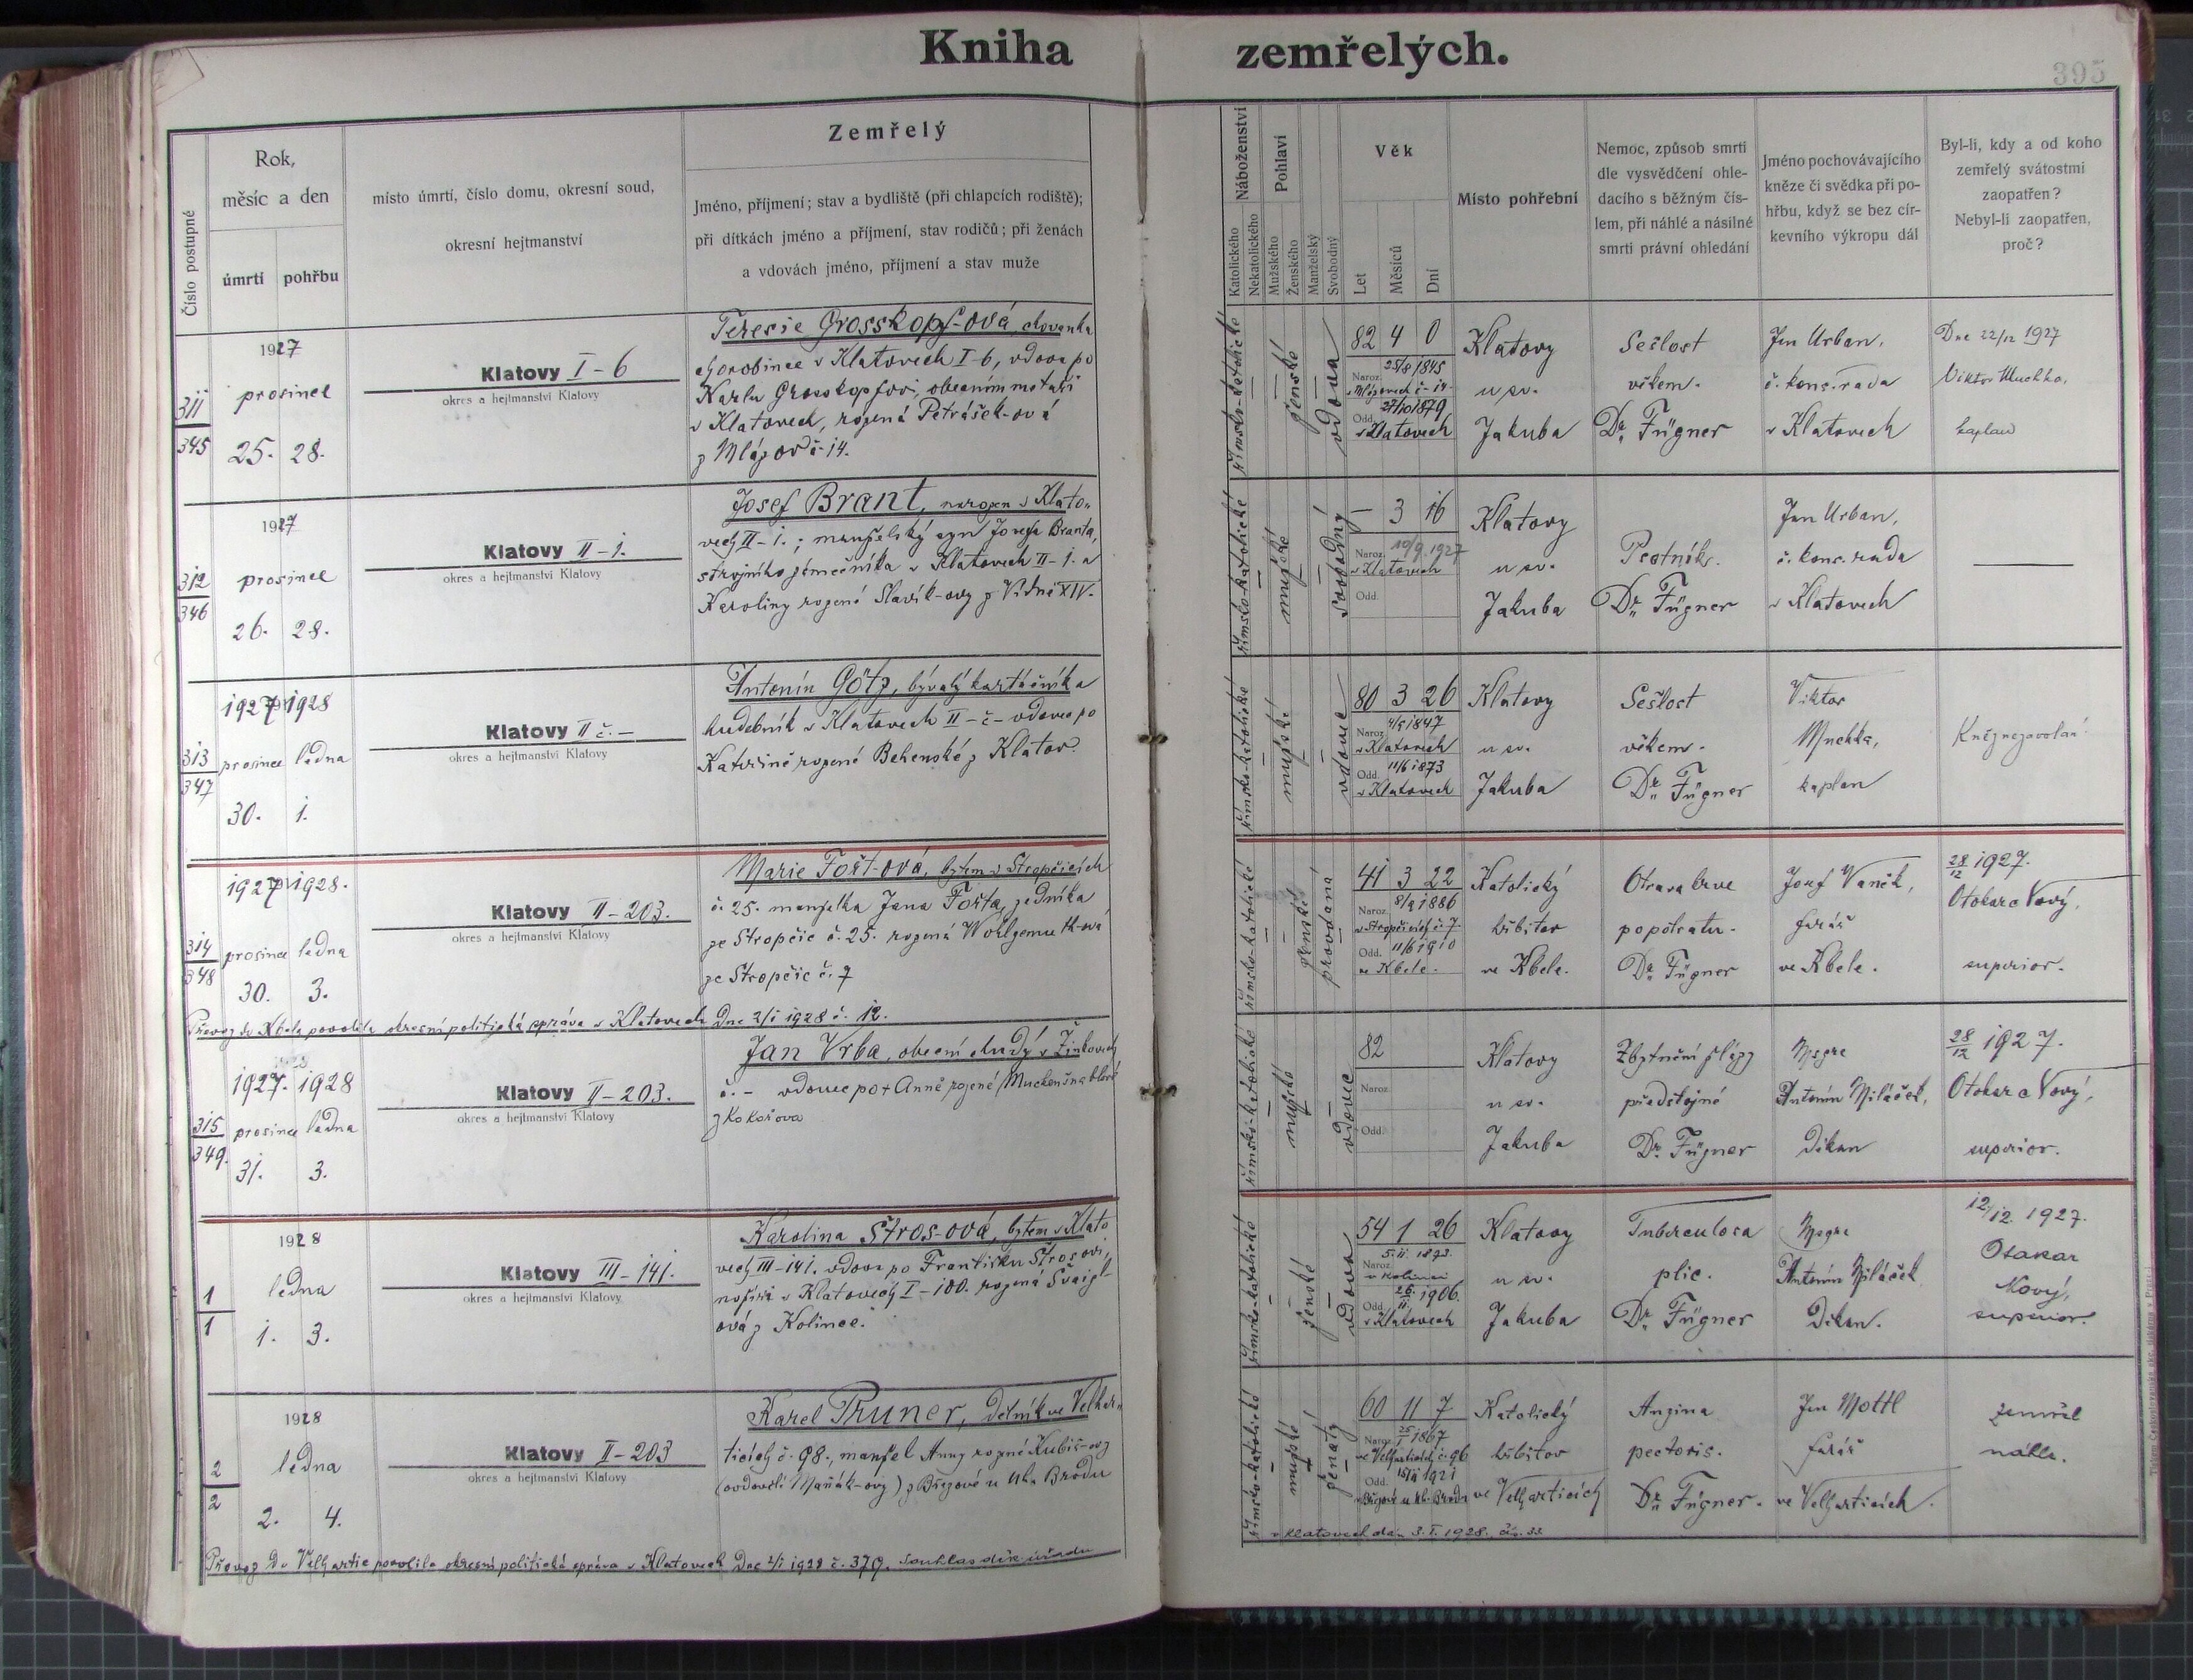 Kniha zemřelých.
395
Číslo postupné
Rok,
měsíc a den
úmrtí
pohřbu
místo úmrtí, číslo domu, okresní soud,
okresní hejtmanství
Zemřelý
Jméno, příjmení; stav a bydliště (při chlapcích rodiště);
při dítkách jméno a příjmení, stav rodičů; při ženách
a vdovách jméno, příjmení a stav muže
Náboženství
Katolického
Nekatolického
Pohlaví
Mužského
Ženského
Manželský
Svobodný
Věk
Let
Měsíců
Dní
Místo pohřební
Nemoc, způsob smrti
dle vysvědčení ohle-
dacího s běžným čís-
lem, při náhlé a násilné
smrti právní ohledání
Jméno pochovávajícího
kněze či svědka při po-
hřbu, když se bez cír-
kevního výkropu dál
Byl-li, kdy a od koho
zemřelý svátostmi
zaopatřen?
Nebyl-li zaopatřen,
proč?
311
345
1927
prosince
25. 28.
Klatovy I-6
okres a hejtmanství Klatovy
Terezie Grosskopf-ová, chovanka
chorobince v Klatovech I-6, vdova po
Karlu Grosskopfovi, obecním
v Klatovech, rozená Petrášek-ová
z Mlázov č. 14.
římsko-katolické
ženské
vdova
82 4 0
Naroz. 25/8 1845
v Mlázovech č-14-
Odd. 27/10 1879
v Klatovech
Klatovy
u sv.
Jakuba
Sešlost
věkem.
Dr. Fügner
Jan Urban,
č. kons. rada
v Klatovech
Dne 22/12 1927
Viktor Muchka,
kaplan
312
346
1927
prosince
26. 28.
Klatovy II-1.
okres a hejtmanství Klatovy
Josef Brant, narozen v Klato-
vech II-1.; manželský syn Josefa Branta,
strojního zámečníka v Klatovech II-1. a
Karoliny rozené Slavík-ovy z Vídně XIV.
římsko-katolické
mužské
svobodný
— 3 16
Naroz. 10/9. 1927
v Klatovech
Odd.
Klatovy
u sv.
Jakuba
Psotník.
Dr. Fügner
Jan Urban,
č. kons. rada
v Klatovech
313
347
1927 1928
prosince ledna
30. 1.
Klatovy II č. –
okres a hejtmanství Klatovy
Antonín Götz, bývalý kartáčník a
hudebník v Klatovech II-č- vdovec po
Kateřině rozené Behenské z Klatov.
římsko-katolické
mužské
vdovec
80 3 26
Naroz. 4/9 1847
v Klatovech
Odd. 11/6 1873
v Klatovech
Klatovy
u sv.
Jakuba
Sešlost
věkem.
Dr. Fügner
Viktor
Muchka,
kaplan
Kněz nezavolán!
314
348
1927 1928.
prosince ledna
30. 3.
Klatovy II-203.
okres a hejtmanství Klatovy
Marie Fořt-ová, bytem v Stropčicích
č. 25. manželka Jana Fořta, zedníka
ze Stropčic č. 25. rozená Wohlgemuth-ová
ze Stropčic č. 7
římsko-katolické
ženské
provdaná
41 3 22
Naroz. 8/9 1886
v Stropčicích č. 7
Odd. 11/6 1910
ve Kbele.
Katolický
hřbitov
ve Kbele.
Otrava krve
po potratu.
Dr. Fügner
Josef Vaněk,
farář
ve Kbele.
28/12 1927.
Otokar Nový,
superior.
Převoz do Kbela povolila okresní politická správa v Klatovech dne 2/1 1928 č. 12.
315
349.
1927. 1928
prosince ledna
31. 3.
Klatovy II-203.
okres a hejtmanství Klatovy
Jan Vrba, obecní chudý v Žinkovech
č. - vdovec po + Anně rozené
z Kokořova
římsko-katolické
mužské
vdovec
82
Naroz.
Odd.
Klatovy
u sv.
Jakuba
Zbytnění žlázy
předstojné
Dr. Fügner
Msgre
Antonín Miláček,
děkan
28/12 1927.
Otokar Nový,
superior.
1
1
1928
ledna
1. 3.
Klatovy III-141.
okres a hejtmanství Klatovy
Karolina Štros-ová, bytem v Klato
vech III-141. vdova po Františku Štrosovi,
nožíři v Klatovech I-100. rozená Švaigl-
ová z Kolince.
římsko-katolické
ženské
vdova
54 1 26
Naroz. 5.11. 1873.
v Kolinci
Odd. 26./11. 1906.
v Klatovech
Klatovy
u sv.
Jakuba
Tuberculosa
plic.
Dr. Fügner
Msgre
Antonín Miláček
děkan.
12/12. 1927.
Otakar
Nový,
superior.
2
2
1928
ledna
2. 4.
Klatovy II-203
okres a hejtmanství Klatovy
Karel Pruner, dělník ve Velhar-
ticích č. 98., manžel Anny rozené Kubiš-ovy
(ovdovělé Maňák-ovy) z Březové u Uh. Brodu
římsko-katolické
mužské
ženatý
60 11 7
Naroz. 25/1 1867
ve Velharticích č. 96
Odd. 1921
v Březové u Uh. Brodu
Katolický
hřbitov
ve Velharticích
Angina
pectoris.
Dr. Fügner.
Jan Mottl
farář
ve Velharticích.
zemřel
náhle.
Převoz do Velhartic povolila okresní politická správa v Klatovech dne 2/1 1928 č. 379. Souhlas děk. úřadu
v Klatovech dán 3.I.1928. čís. 33.